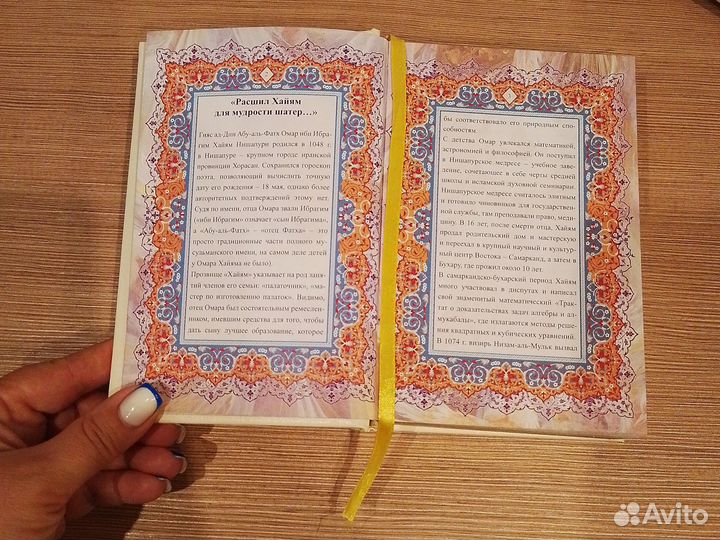 «Расшил Хайям
для мудрости шатер…»
Гияс ад-Дин Абу-аль-Фатх Омар ибн Ибра-
гим Хайям Нишапури родился в 1048 г.
в Нишапуре – крупном городе иранской
провинции Хорасан. Сохранился гороскоп
поэта, позволяющий вычислить точную
дату его рождения – 18 мая, однако более
авторитетных подтверждений этому нет.
Судя по имени, отца Омара звали Ибрагим
(«ибн Ибрагим» означает «сын Ибрагима»,
а «Абу-аль-Фатх» – «отец Фатха» – это
просто традиционные части полного му-
сульманского имени, на самом деле детей
у Омара Хайяма не было).
Прозвище «Хайям» указывает на род заня-
тий членов его семьи: «палаточник», «ма-
стер по изготовлению палаток». Видимо,
отец Омара был состоятельным ремеслен-
ником, имевшим средства для того, чтобы
дать сыну лучшее образование, которое
бы соответствовало его природным спо-
собностям.
С детства Омар увлекался математикой,
астрономией и философией. Он поступил
в Нишапурское медресе – учебное заве-
дение, сочетающее в себе черты средней
школы и исламской духовной семинарии.
Нишапурское медресе считалось элитным
и готовило чиновников для государствен-
ной службы, там преподавали право, меди-
цину. В 16 лет, после смерти отца, Хайям
продал родительский дом и мастерскую
и переехал в крупный научный и культур-
ный центр Востока – Самарканд, а затем в
Бухару, где прожил около 10 лет.
В самаркандско-бухарский период Хайям
много участвовал в диспутах и написал
свой знаменитый математический «Трак-
тат о доказательствах задач алгебры и ал-
мукабалы», где излагаются методы реше-
ния квадратных и кубических уравнений.
В 1074 г. визирь Низам-аль-Мульк вызвал
Avito